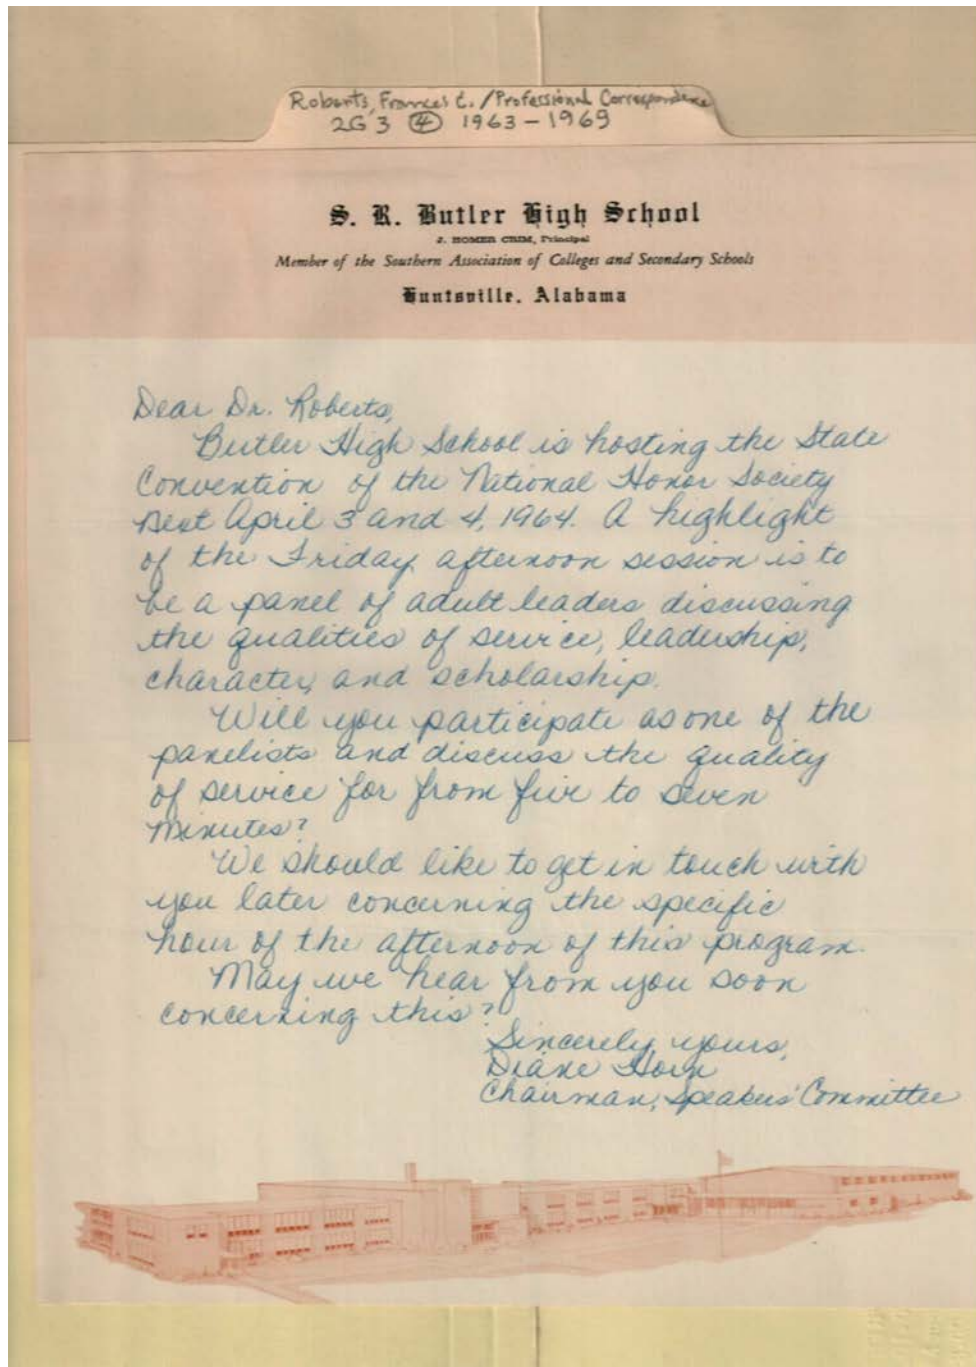 Roberts, Frances C. / Professional Correspondence
2G3 ④ 1963-1969
S. R. Butler High School
J. HOMER CRIM, Principal
Member of the Southern Association of Colleges and Secondary Schools
Huntsville, Alabama
Dear Dr. Roberts,
Butler High School is hosting the State
Convention of the National Honor Society
next April 3 and 4, 1964. A highlight
of the Friday afternoon session is to
be a panel of adult leaders discussing
the qualities of service, leadership,
character, and scholarship.
Will you participate as one of the
panelists and discuss the quality
of service for from five to seven
minutes?
We should like to get in touch with
you later concerning the specific
hour of the afternoon of this program.
May we hear from you soon
concerning this?
Sincerely yours,
Diane Horn
Chairman, Speakers' Committee